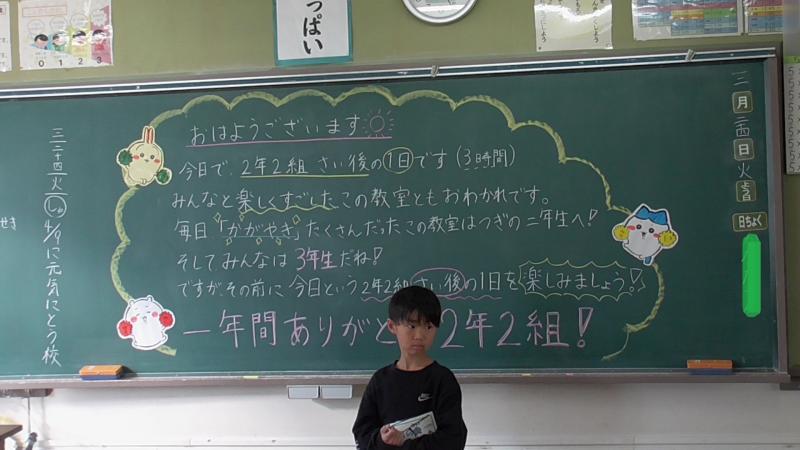 っぱい
0 1 2 3
おはようございます
今日で、2年2組 さい後の1日です(3時間)
みんなと楽しくすごしたこの教室ともおわかれです。
毎日「かがやき」たくさんだったこの教室はつぎの二年生へ!
そして、みんなは 3年生だね!
ですが、その前に 今日という 2年2組 さい後の1日を 楽しみましょう!!
一年間ありがと 2年2組!
三 月 二四 日
日ちょく
三 二十四 火
4/7に元気にとう校
せき